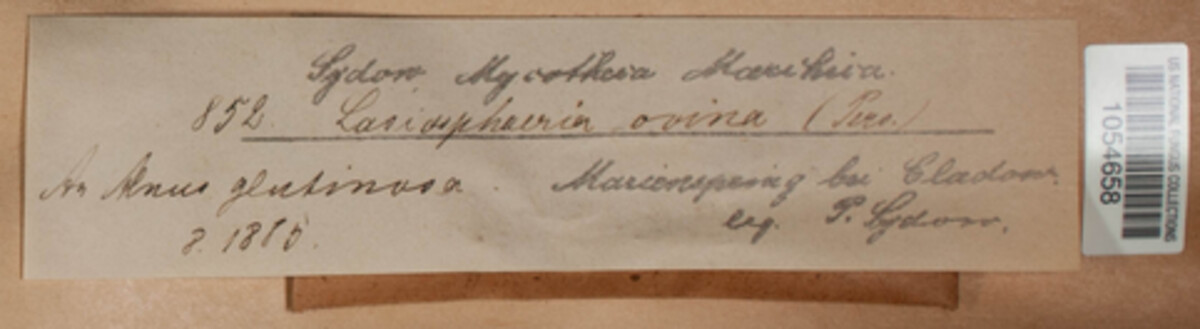 Sydow, Mycotheca Marchica.
852. Lasiosphaeria ovina (Pers.)
An Alnus glutinosa. Marienspring bei Cladow.
8. 1885. leg. P. Sydow.
US NATIONAL FUNGUS COLLECTIONS
1054658